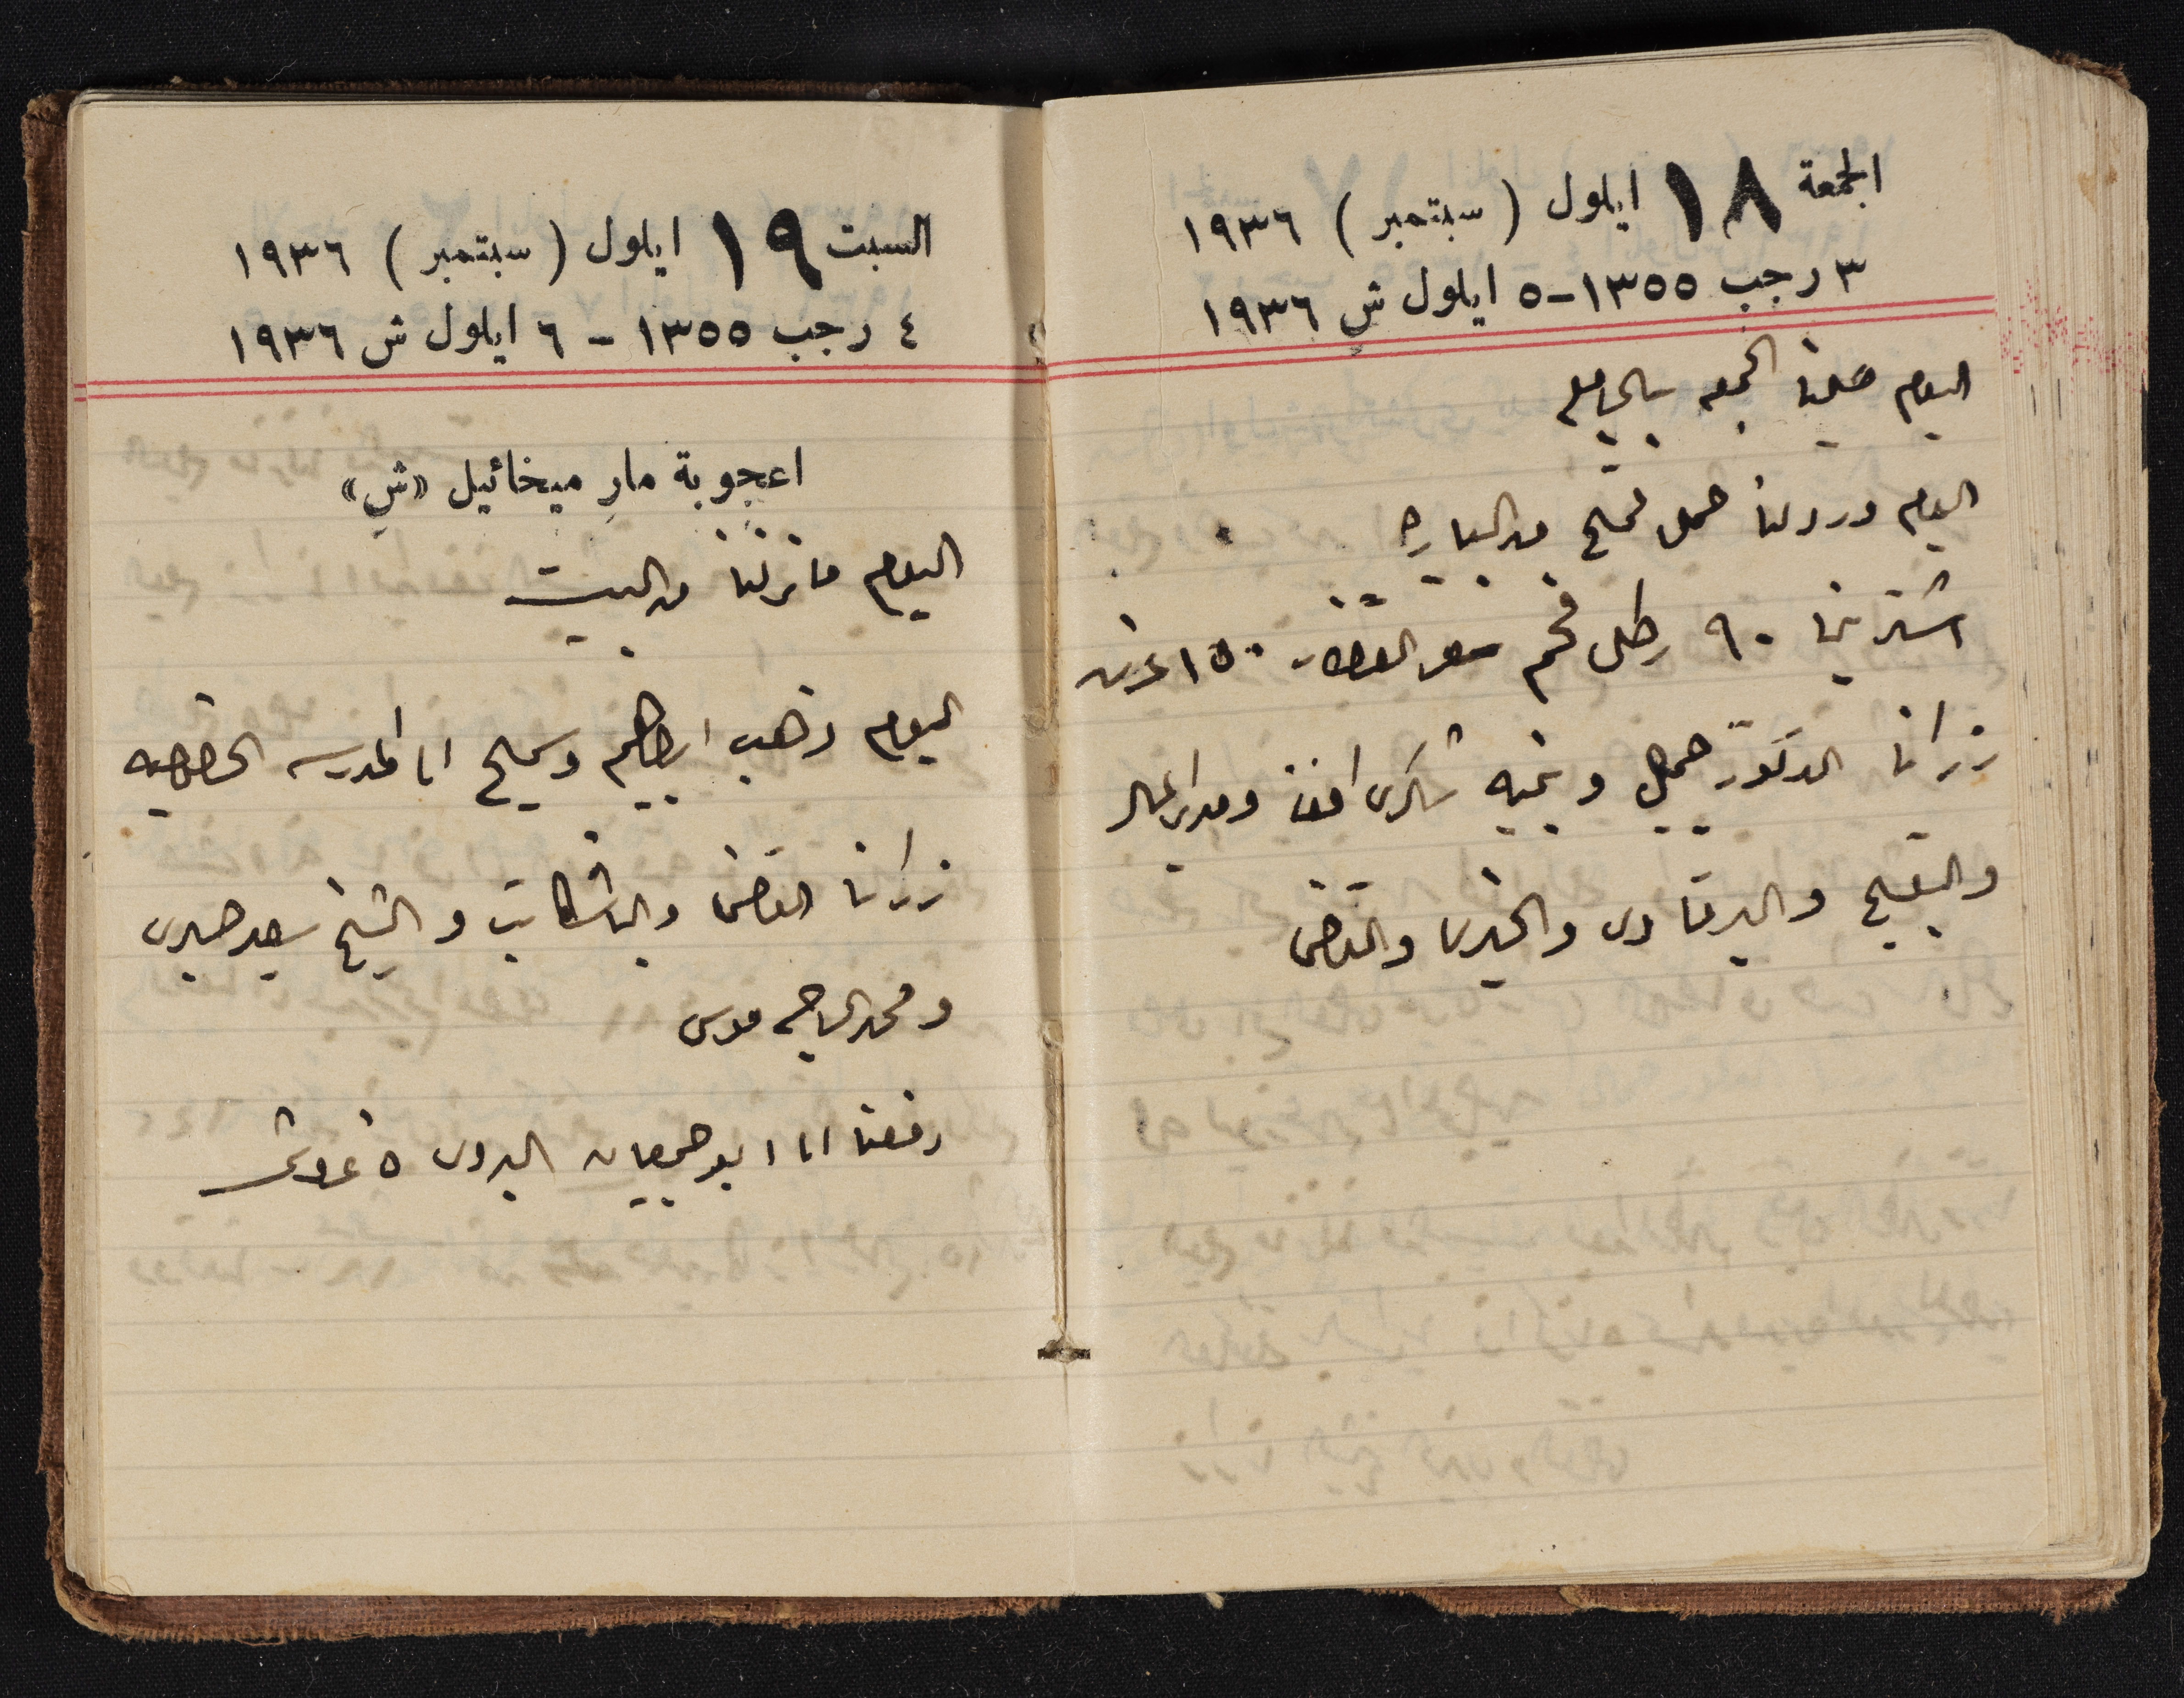 الجمعة ١٨ ايلول (سبتمبر) ١٩٣٦
٣ رجب ١٣٥٥-٥ ايلول ش ١٩٣٦
اليوم صلينا الجمعه بالجامع
اليوم ورد لنا حمل قمح من البياره
اشترينا ٩٠ رطل فحم سعر القنطار ١٥٠ غرش
زارنا الدكتور جميل ونجيه شكري افندي ومدير المال
والبقيلي والدرقاوي والخيري والقاضي
السبت ١٩ ايلول (سبتمبر) ١٩٣٦
٤ رجب ١٣٥٥ - ٦ ايلول ش ١٩٣٦
اعجوبة مار ميخائيل «ش»
اليوم ما نزلنا من البيت
اليوم ذهب ابراهيم وسميح الى المدرسه
زارنا القاضي والباشكاتب والشيخ سعيد صبري
ومحمد الحاج موسى
دفعنا الى ابو جميعان البدوي ٥ غروش